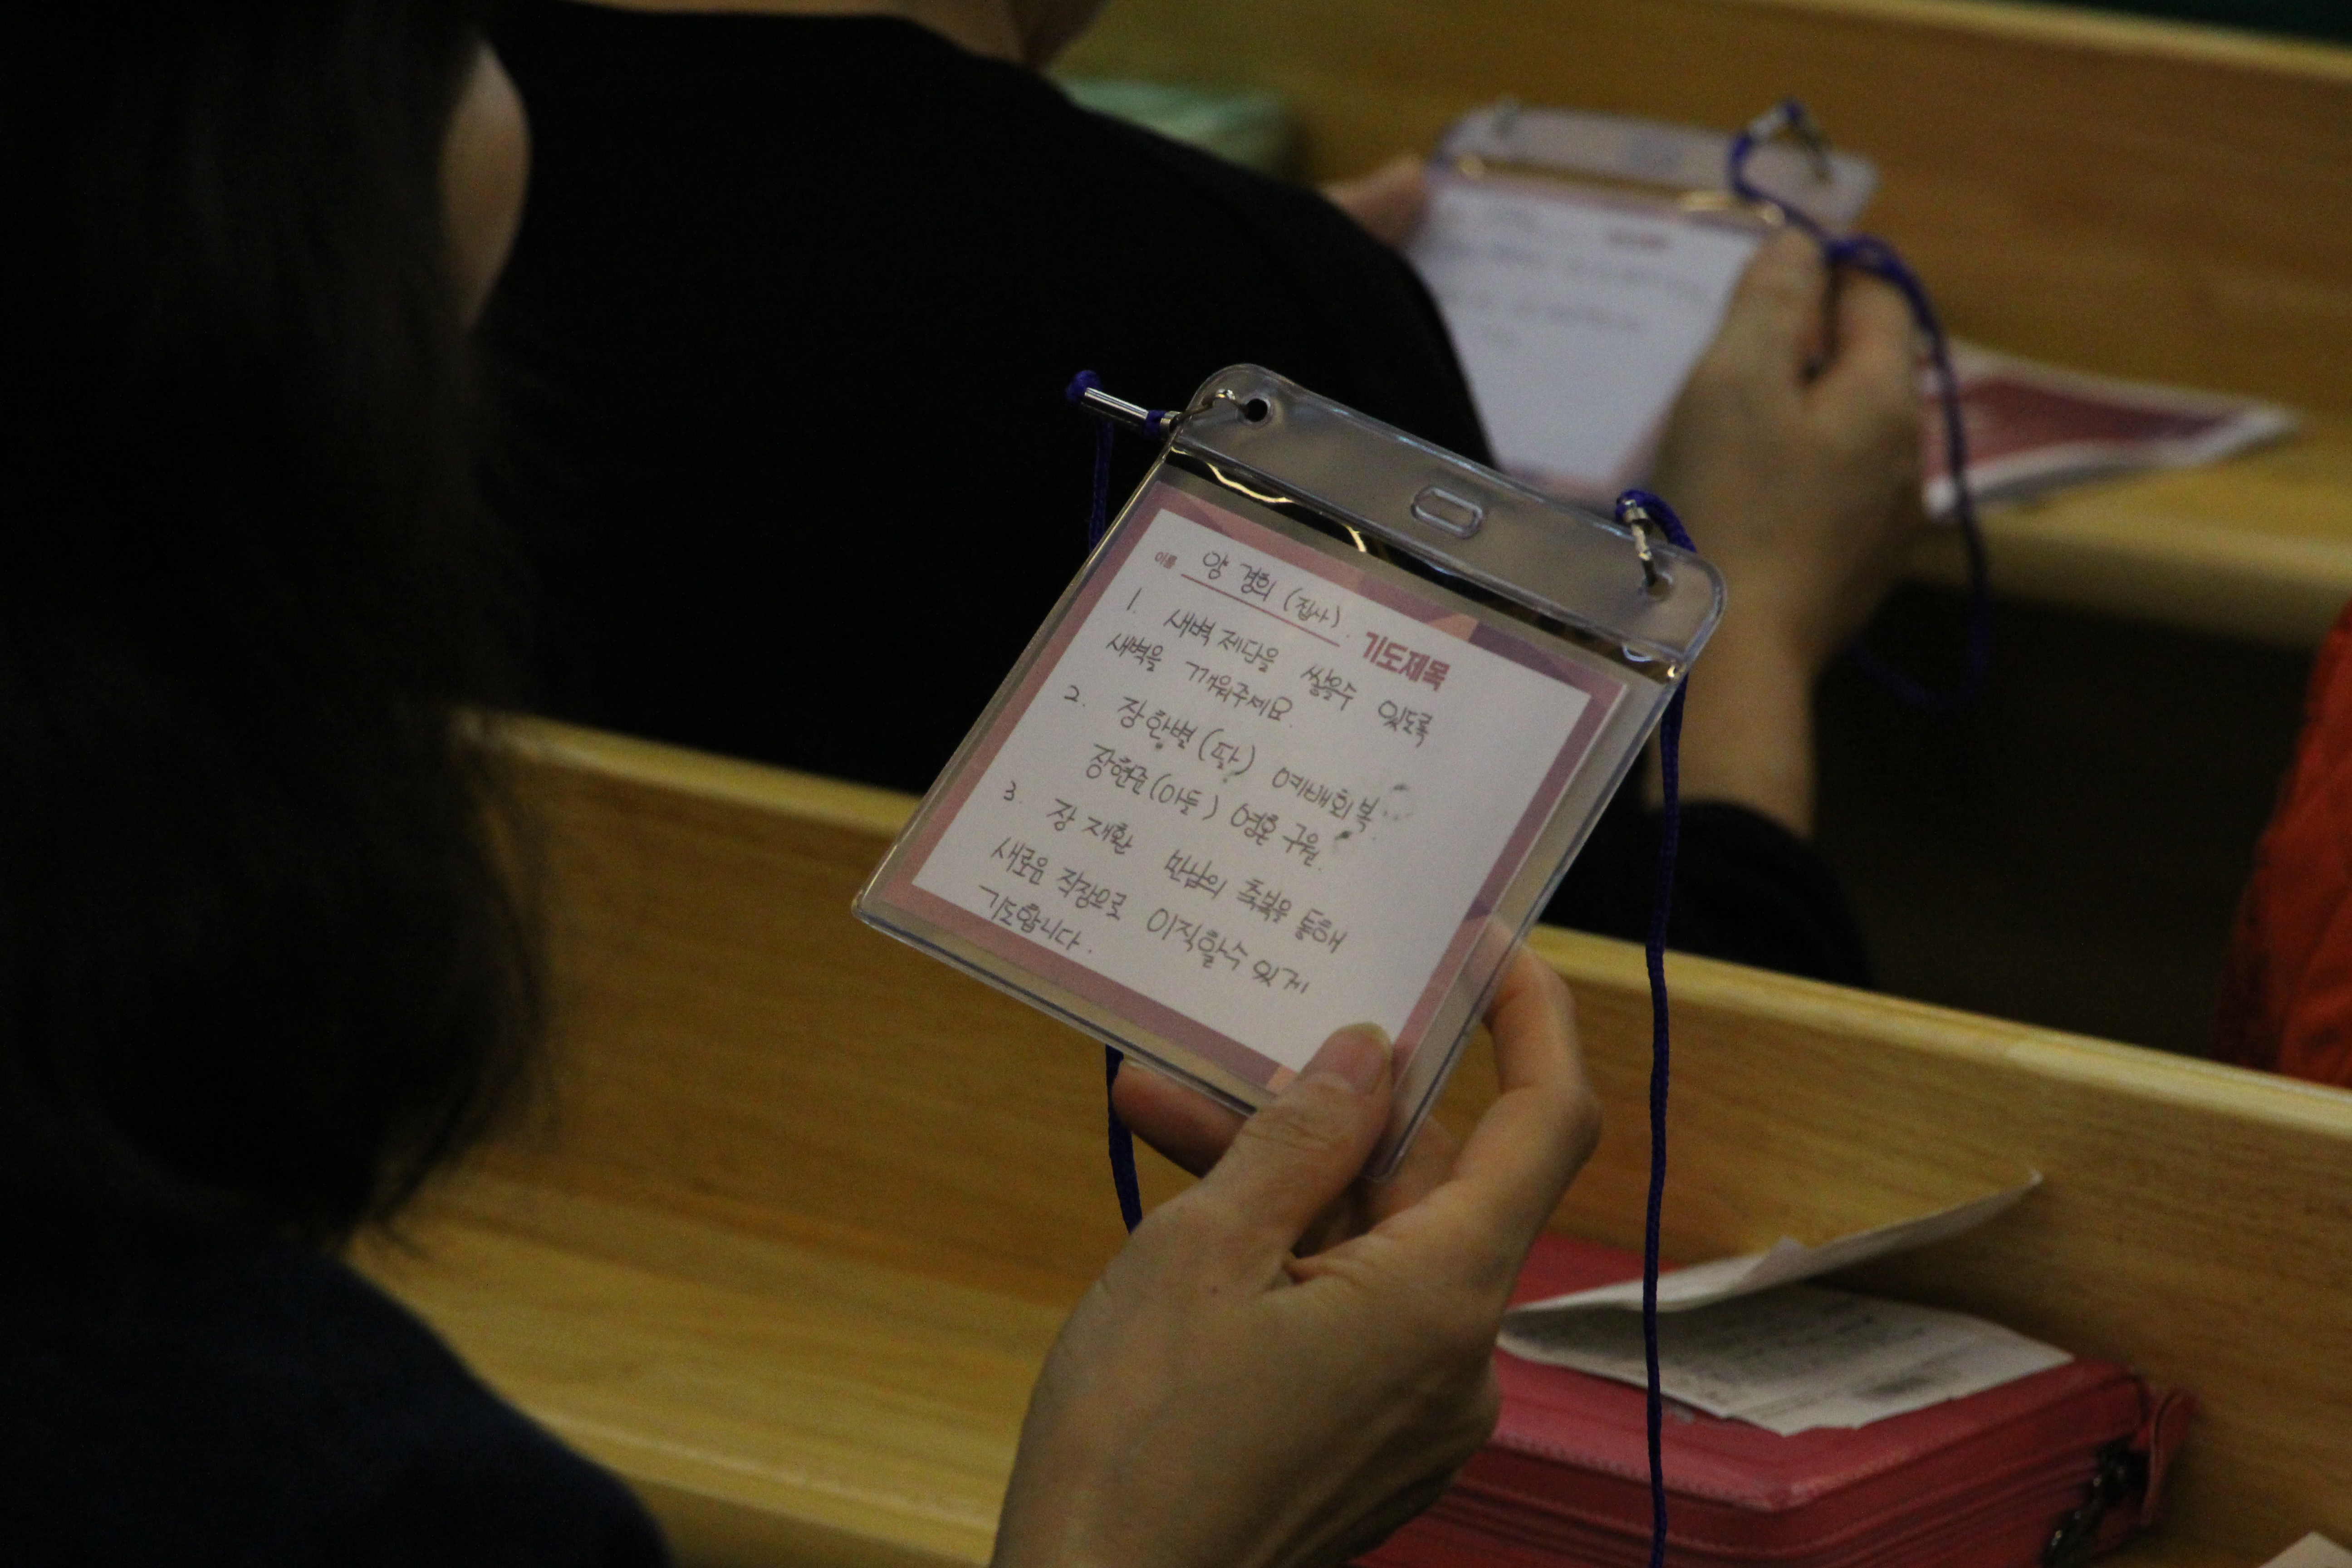 이름 양 경희 (집사).
기도제목
1. 새벽 제단을 쌓을수 있도록
새벽을 깨워주세요.
2. 장한별 (딸) 예배회복.
장현준 (아들) 영혼 구원.
3. 장 재환 만남의 축복을 통해
새로운 직장으로 이직할수 있게
기도합니다.